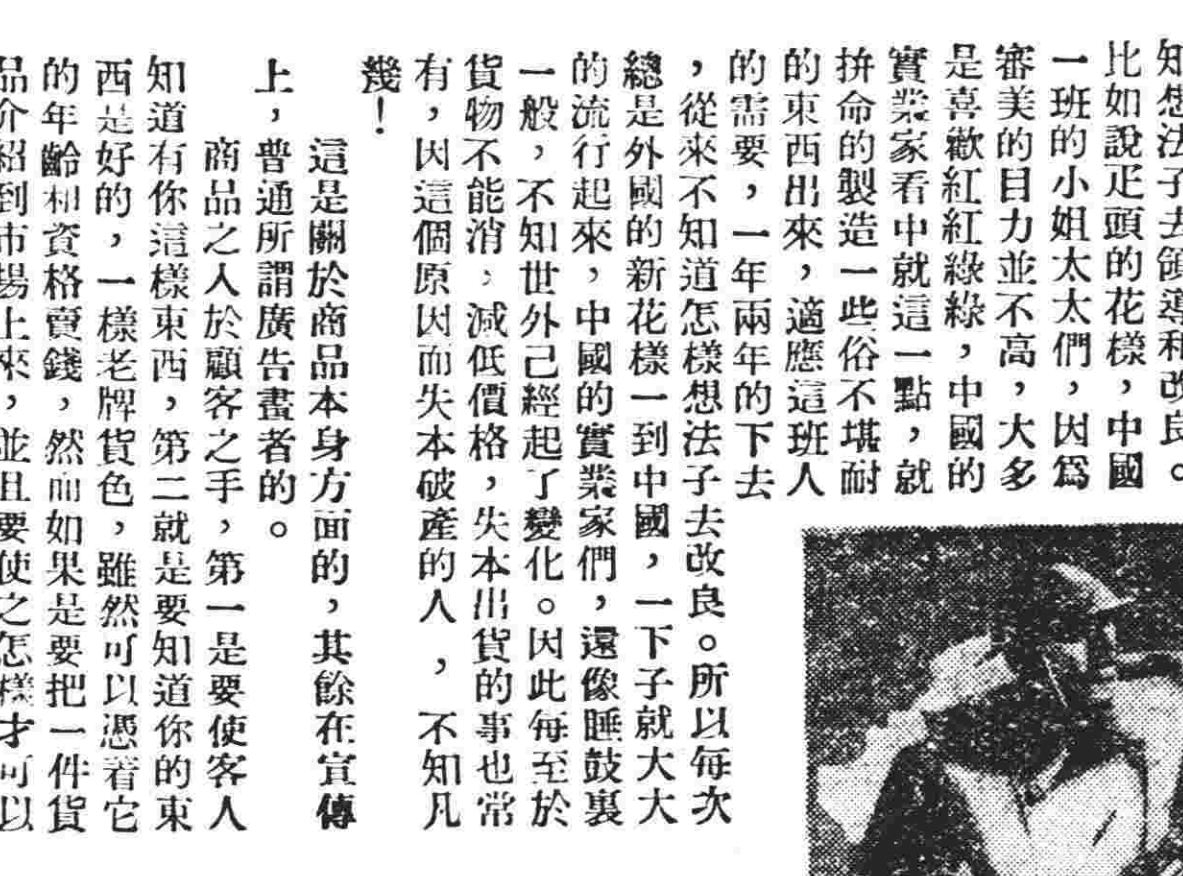 知想法子去領導和改良。
比如說疋頭的花樣，中國
一班的小姐太太們，因爲
審美的目力並不高，大多
是喜歡紅紅綠綠，中國的
實業家看中就這一點，就
拚命的製造一些俗不堪耐
的東西出來，適應這班人
的需要，一年兩年的下去
，從來不知道怎樣想法子去改良。所以每次
總是外國的新花樣一到中國，一下子就大大
的流行起來，中國的實業家們，還像睡鼓裏
一般，不知世外己經起了變化。因此每至於
貨物不能消，減低價格，失本出貨的事也常
有，因這個原因而失本破產的人，不知凡
幾！
這是關於商品本身方面的，其餘在宣傳
上，普通所謂廣告畫者的。
商品之人於顧客之手，第一是要使客人
知道有你這樣東西，第二就是要知道你的東
西是好的，一樣老牌貨色，雖然可以憑着它
的年齡和資格賣錢，然而如果是要把一件貨
品介紹到市場上來，並且要使之怎樣才可以